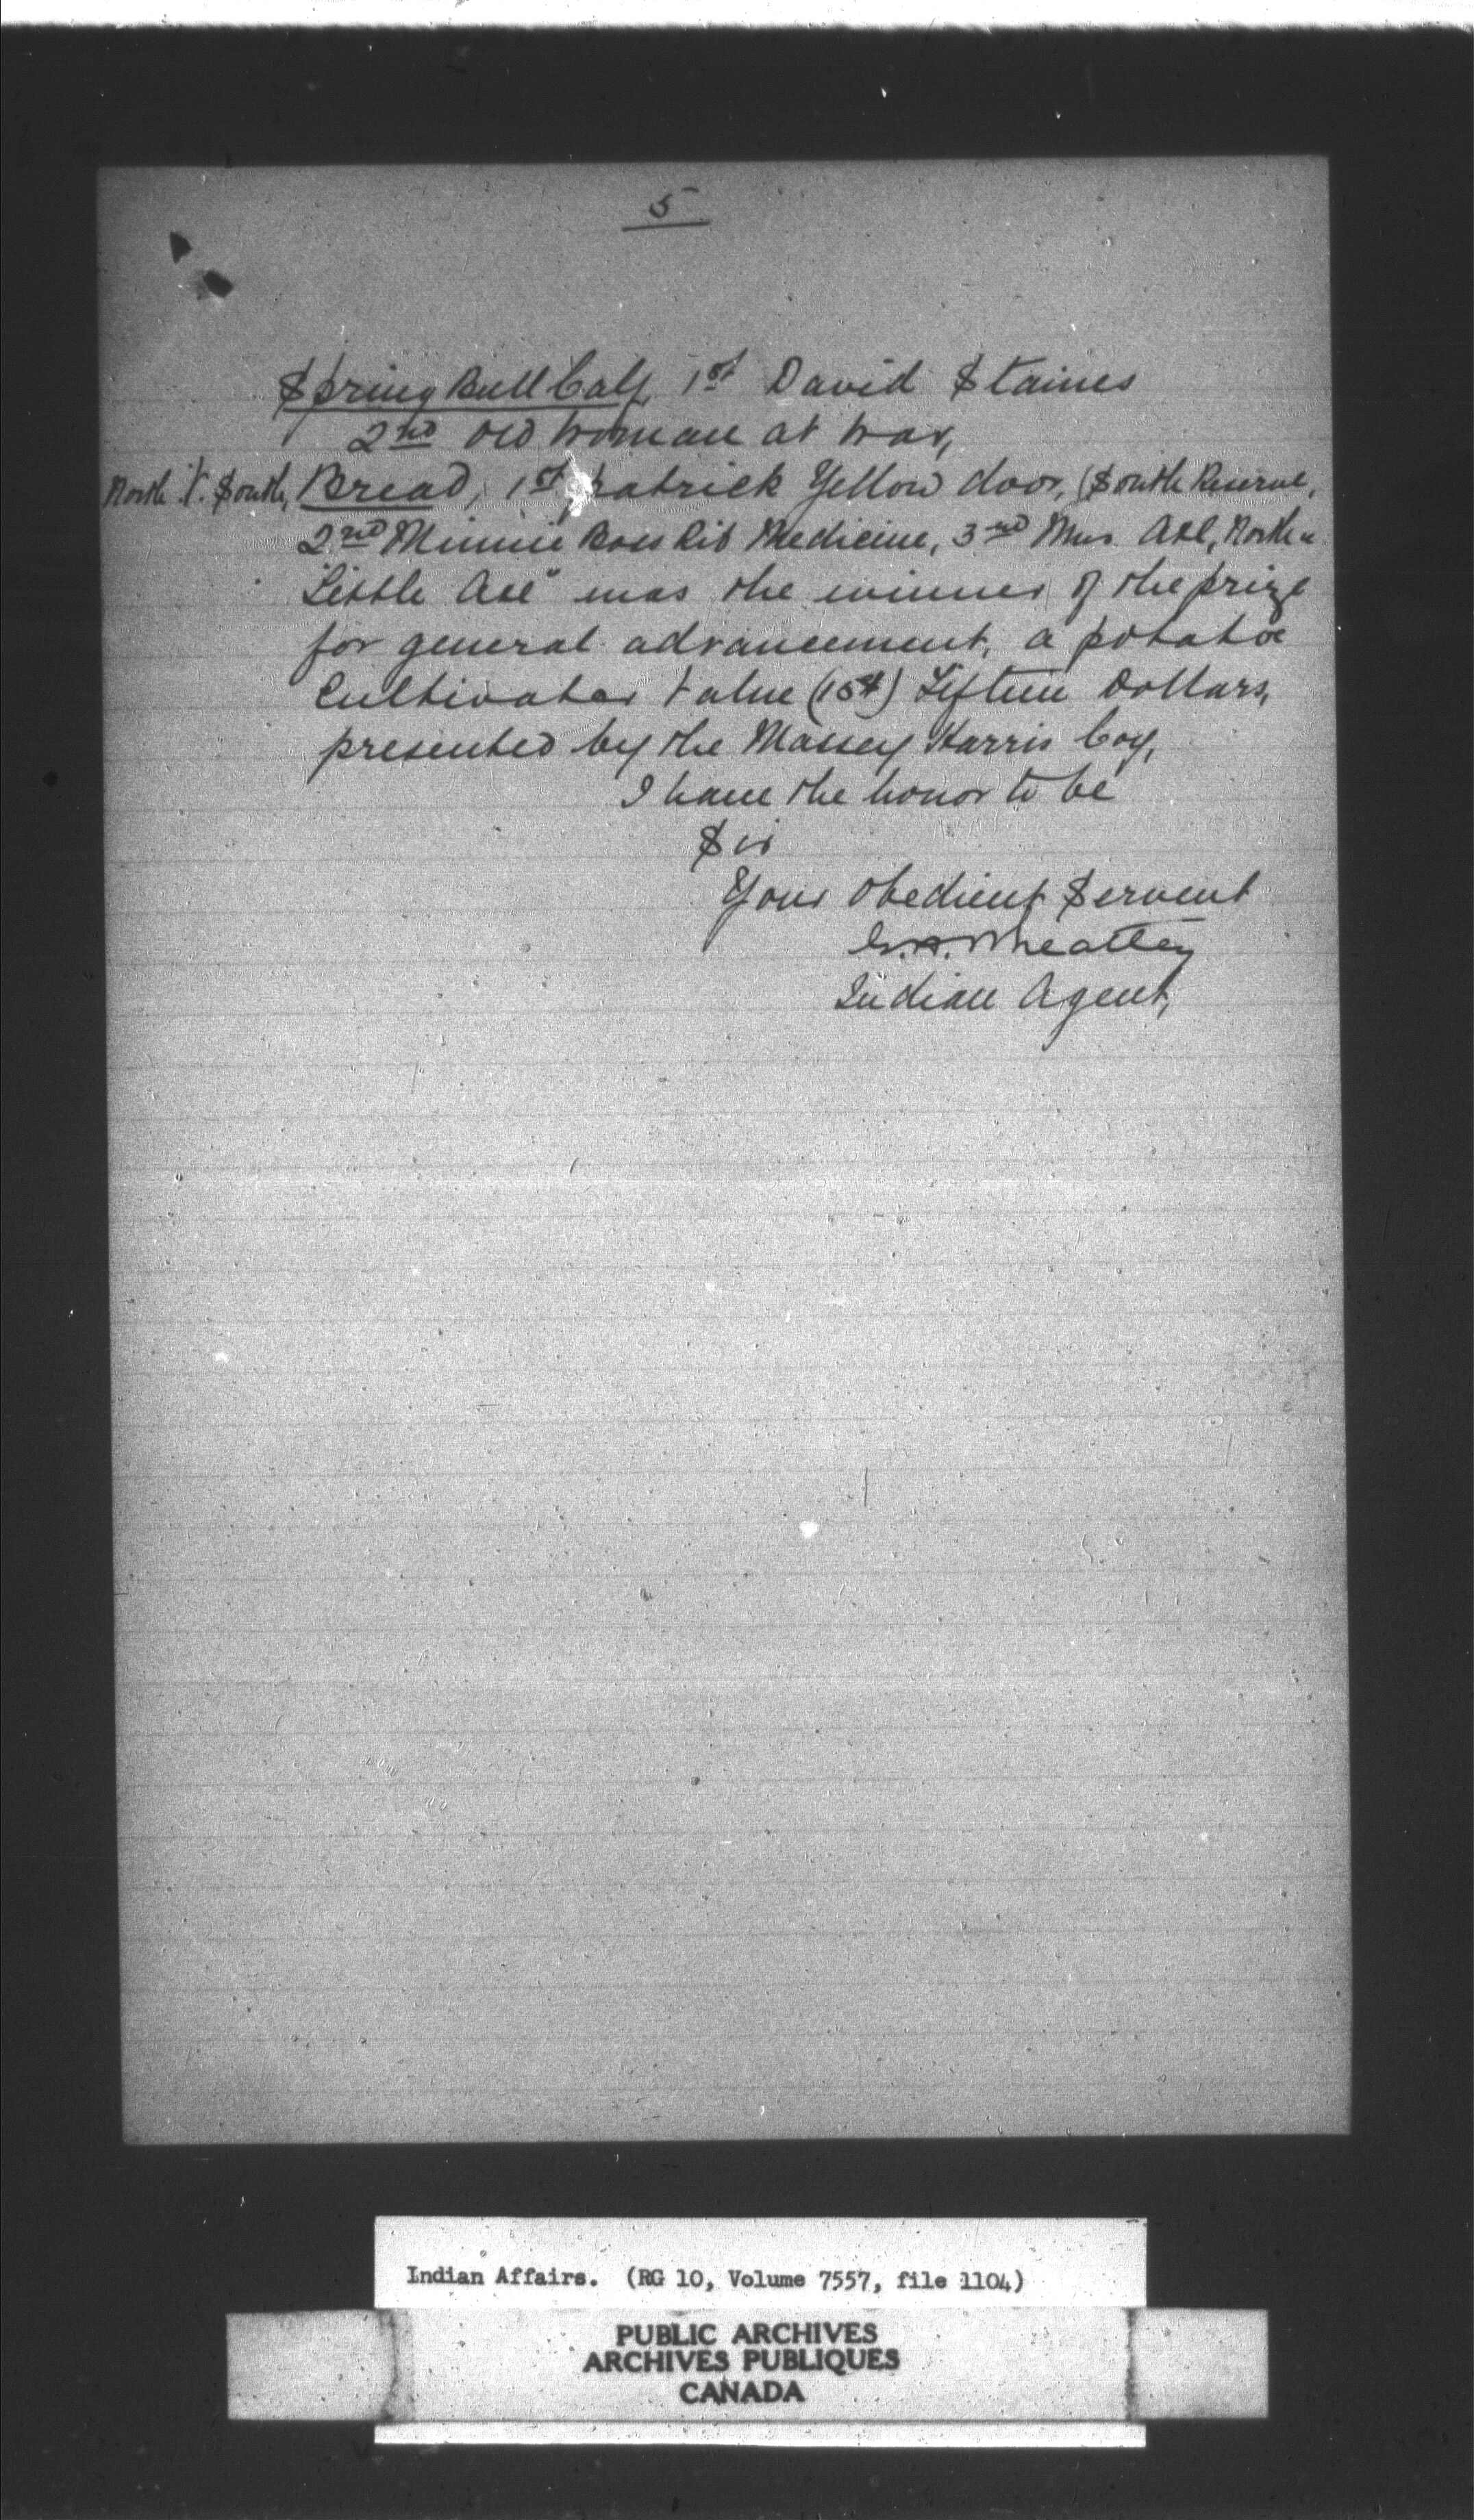 5
Spring Bull Calf, 1st David Staines
2nd Old Woman at War,
North V. South, Bread, 1st, Patrick Yellow door, (South Reserve,
2nd Minnie Boss Rib Medicine, 3rd Mrs. Axe, North "
"Little Axe" was the winner of the prize
for general advancement, a potatoe
Cultivator Value (15$) Fifteen Dollars,
presented by the Massey Harris Coy,
I have the honor to be
Sir
Your Obedient Servent
G.H. Wheatley
Indian Agent,
Indian Affairs. (RG 10, Volume 7557, file 1104)
PUBLIC ARCHIVES
ARCHIVES PUBLIQUES
CANADA